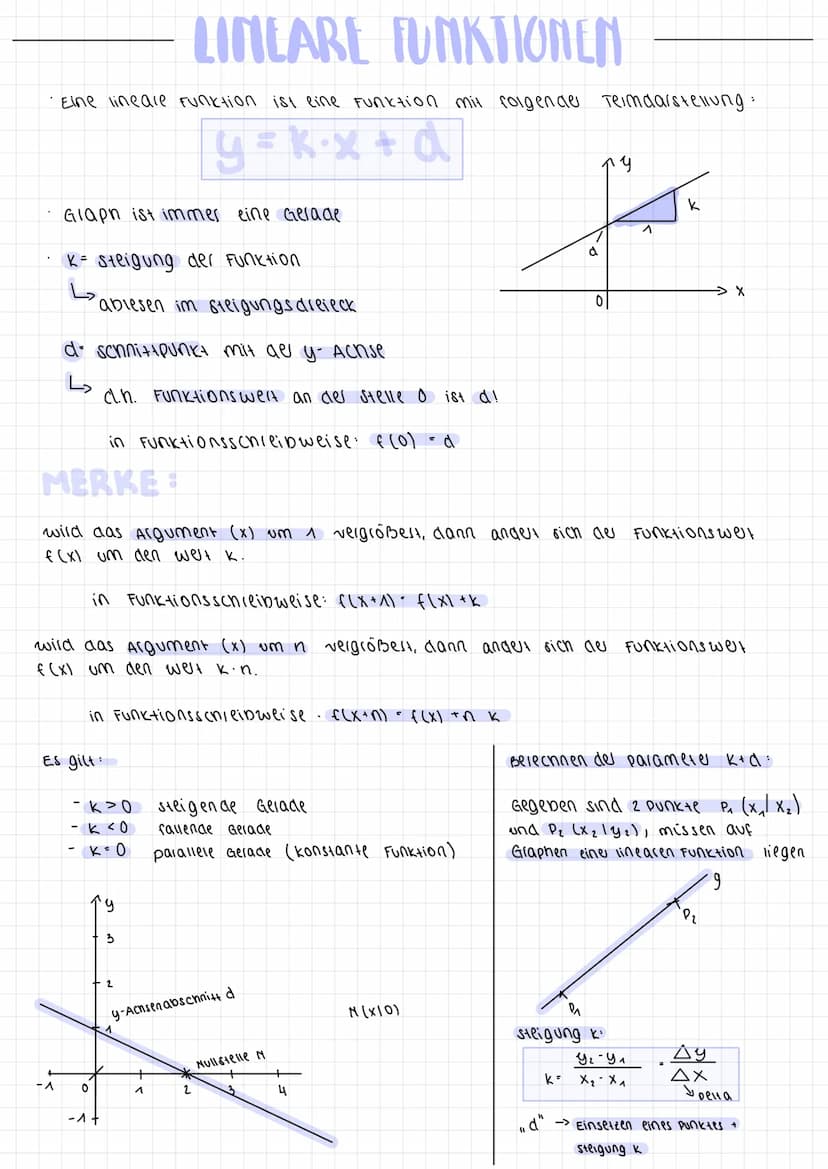 LINEARE FUNKTIONEN
· Eine lineare Funktion ist eine Funktion mit folgender Termdarstellung:
y = k·x + d
y
k
1
d
x
0
· Graph ist immer eine Gerade
· k= Steigung der Funktion
↳ ablesen im Steigungsdreieck
d= Schnittpunkt mit der y-Achse
↳ d.h. Funktionswert an der Stelle 0 ist d!
in Funktionsschreibweise: f(0) = d
MERKE:
wird das Argument (x) um 1 vergrößert, dann ändert sich der Funktionswert
f(x) um den Wert k.
in Funktionsschreibweise: f(x+1) = f(x) + k
wird das Argument (x) um n vergrößert, dann ändert sich der Funktionswert
f(x) um den Wert k·n.
in Funktionsschreibweise: f(x+n) = f(x) + n k
Es gilt:
- k > 0 steigende Gerade
- k < 0 fallende Gerade
- k = 0 parallele Gerade (konstante Funktion)
y
3
2
y-Achsenabschnitt d
1
N(x|0)
Nullstelle N
-1 0 1 2 3 4
-1
Berechnen der Parameter k+d:
Gegeben sind 2 Punkte P₁ (x₁|x₂)
und P₂ (x₂|y₂), müssen auf
Graphen einer linearen Funktion liegen
g
P₂
P₁
Steigung k:
k = y₂-y₁ / x₂-x₁ = Δy / Δx
↘ Delta
„d" → Einsetzen eines Punktes +
Steigung k